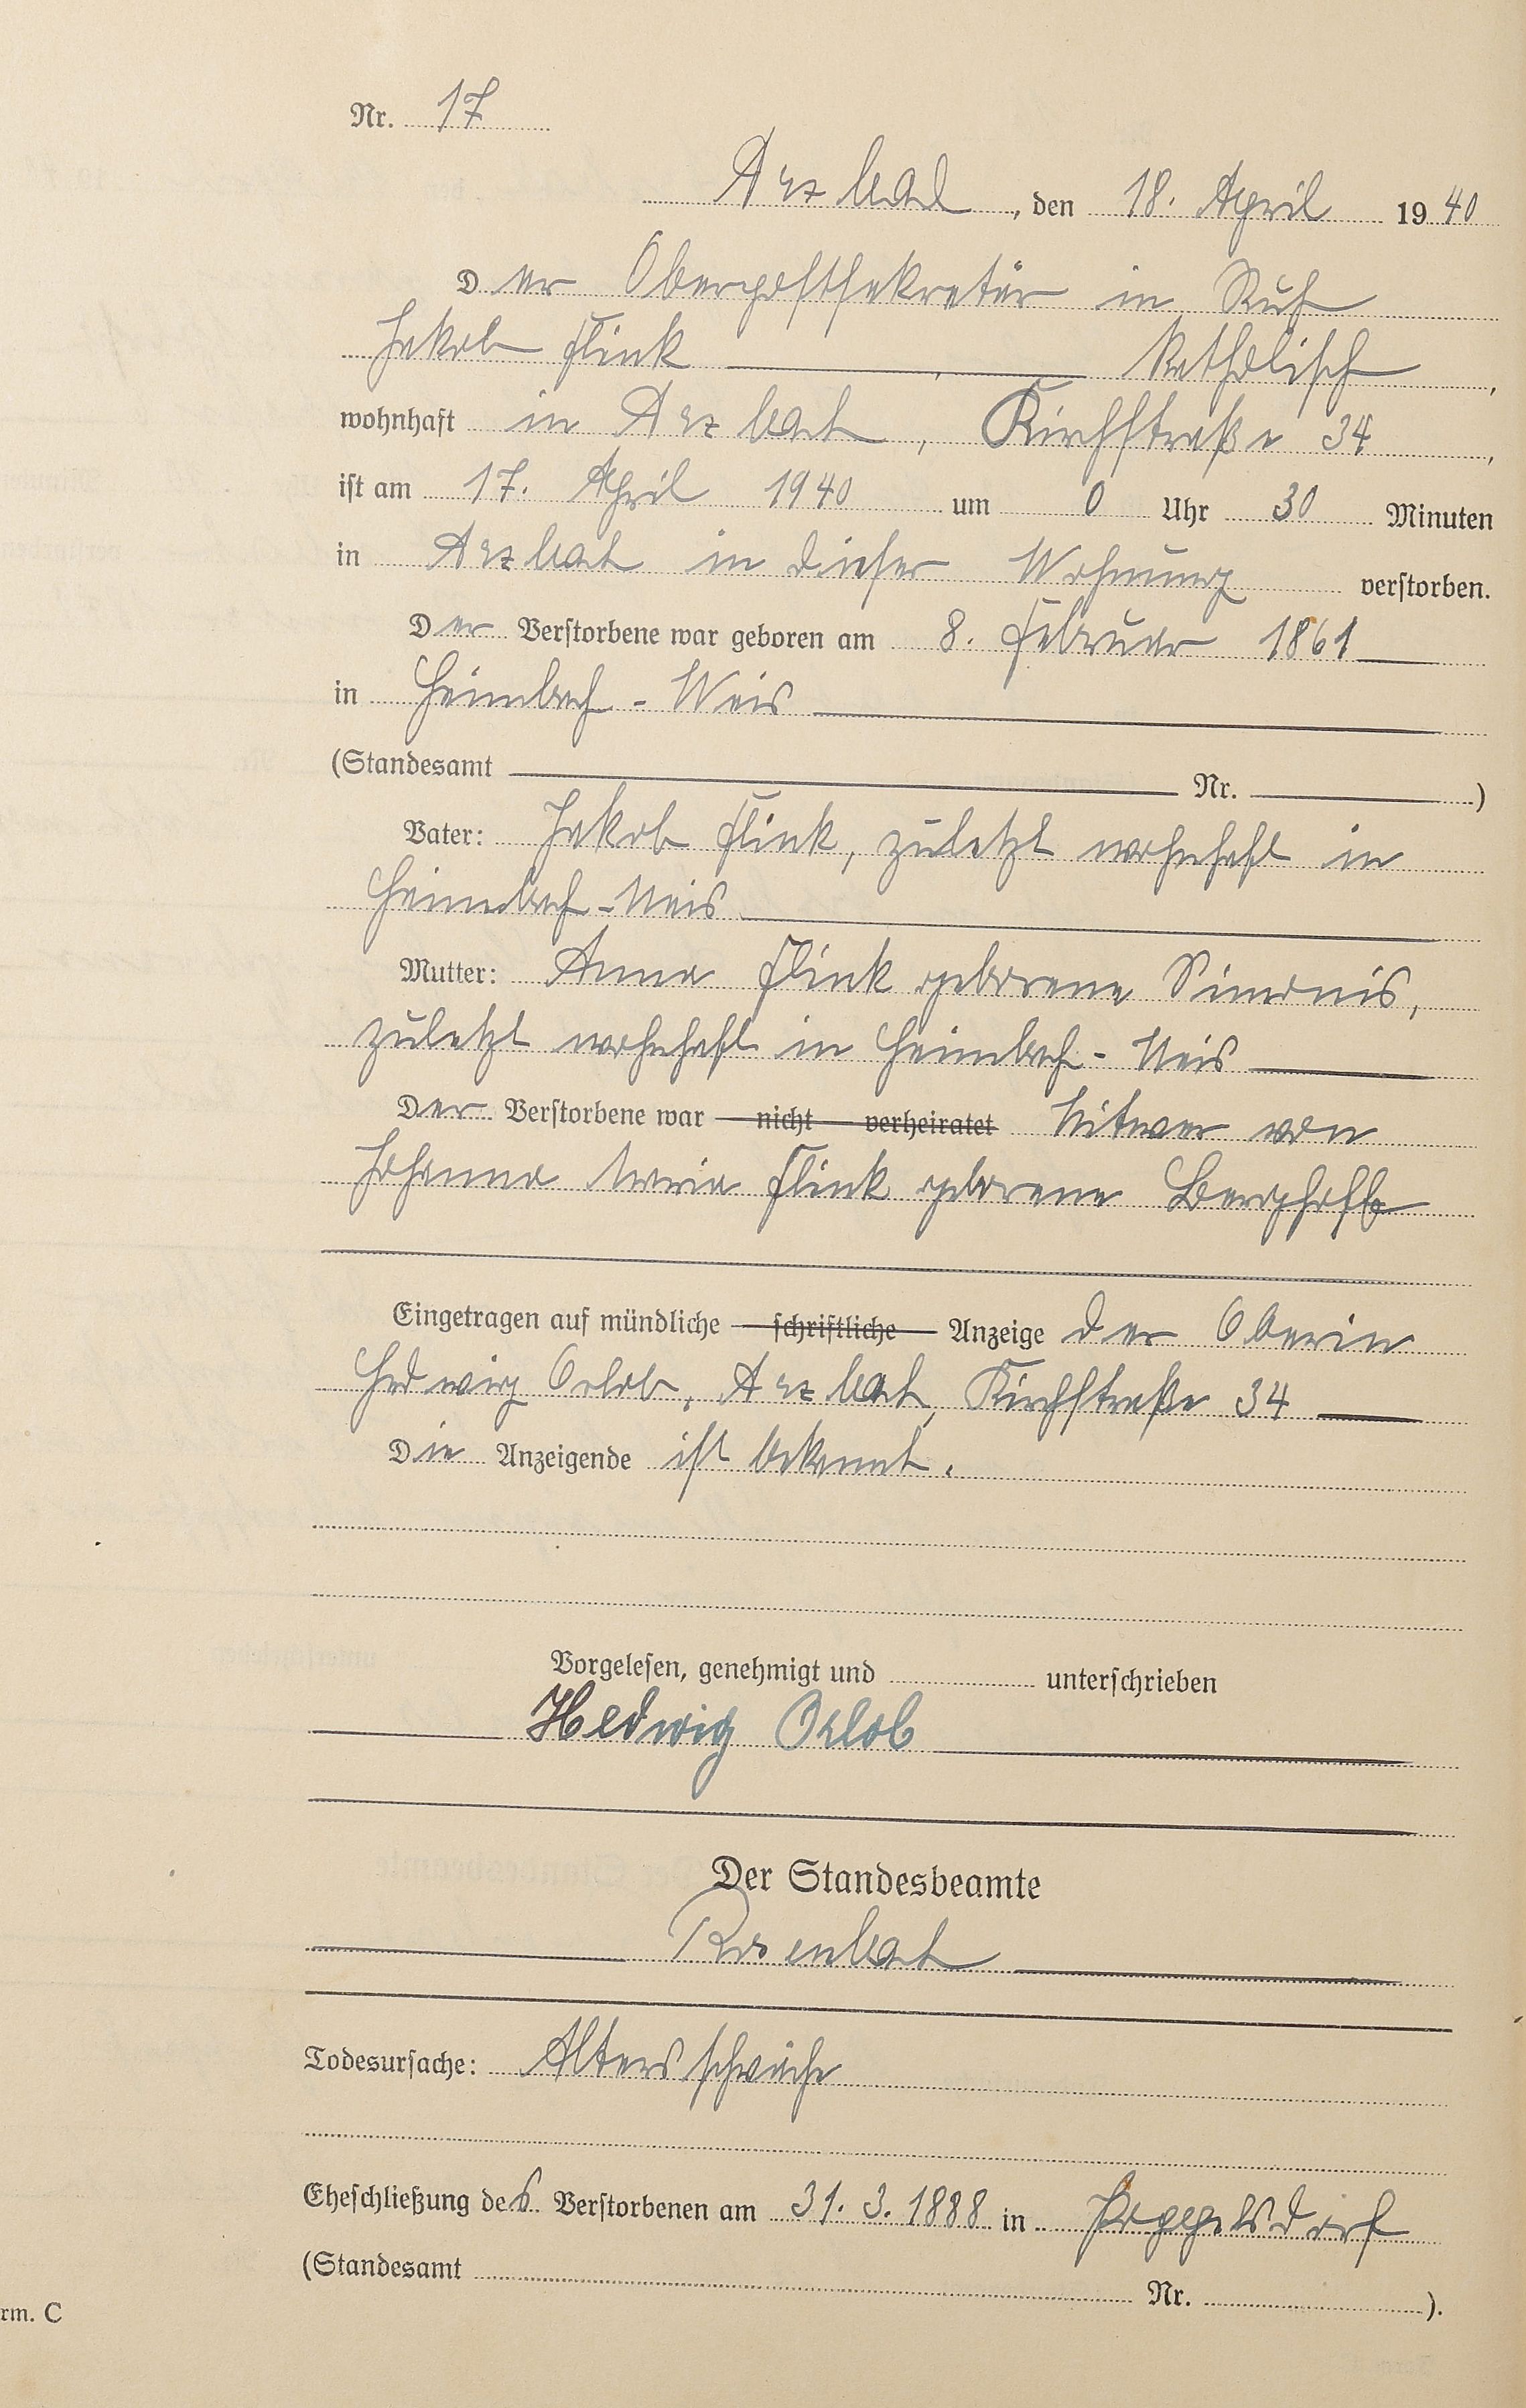 Nr. 17
Arzbach, den 18. April 1940
Der Oberpostsekretär in Ruh
Jakob Flink katholisch,
wohnhaft in Arzbach, Kirchstraße 34,
ist am 17. April 1940 um 0 Uhr 30 Minuten
in Arzbach in dieser Wohnung verstorben.
Der Verstorbene war geboren am 8. Februar 1861
in Heimbach-Weis
(Standesamt Nr. )
Vater: Jakob Flink, zuletzt wohnhaft in
Heimbach-Weis
Mutter: Anna Flink geborene Simonis,
zuletzt wohnhaft in Heimbach-Weis
Der Verstorbene war nicht verheiratet Witwer von
Johanna Maria Flink geborene Berghoff
Eingetragen auf mündliche schriftliche Anzeige der Oberin
Hedwig Orlob, Arzbach, Kirchstraße 34
Die Anzeigende ist bekannt.
Vorgelesen, genehmigt und unterschrieben
Hedwig Orlob
Der Standesbeamte
Rosenbach
Todesursache: Altersschwäche
Eheschließung des Verstorbenen am 31.3.1888 in Poppelsdorf
(Standesamt Nr. ).
rm. C